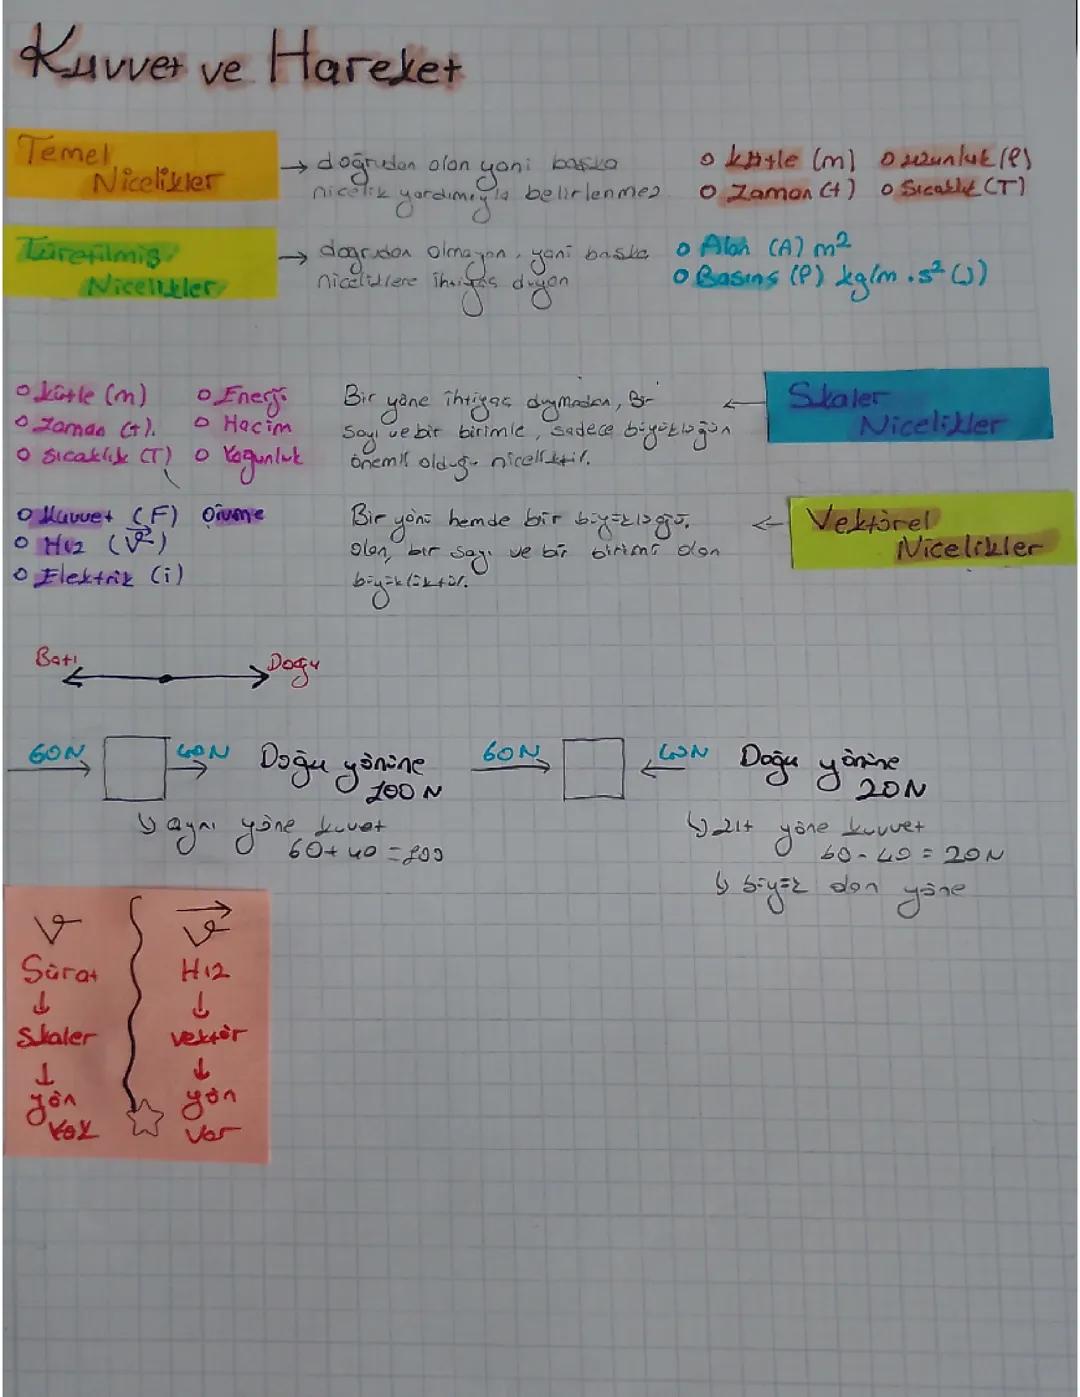 Kuvvet ve Hareket
Temel
Nicelikler
→ doğrudan olan yani başka
nicelik yardımıyla belirlenmez
o kütle (m) o uzunluk (l)
o Zaman (t) o Sıcaklık (T)
Türetilmiş
Nicelikler
→ doğrudan olmayan, yani başka
niceliklere ihtiyaç duyan
o Alan (A) m²
o Basınç (P) kg/m.s² (J)
o kütle (m) o Enerji
o Zaman (t). o Hacim
o Sıcaklık (T) o Yoğunluk
Bir yöne ihtiyaç duymadan, Bir
sayı ve bir birimle, sadece büyüklüğün
önemli olduğu niceliktir.
← Skaler
Nicelikler
o Kuvvet (F) ivme
o Hız (V)
o Elektrik (i)
Bir yönü hemde bir büyüklüğü
olan, bir sayı ve bir birimi olan
büyüklüktür.
← Vektörel
Nicelikler
Batı
Doğu
60N 40N Doğu yönüne
100N
↳ aynı yöne kuvvet
60+40=100
60N 40N Doğu yönüne
20N
↳ zıt yöne kuvvet
60-40=20N
↳ büyük olan yöne
V
Sürat
↓
Skaler
↓
yön
yok
V
Hız
↓
vektör
↓
yön
var